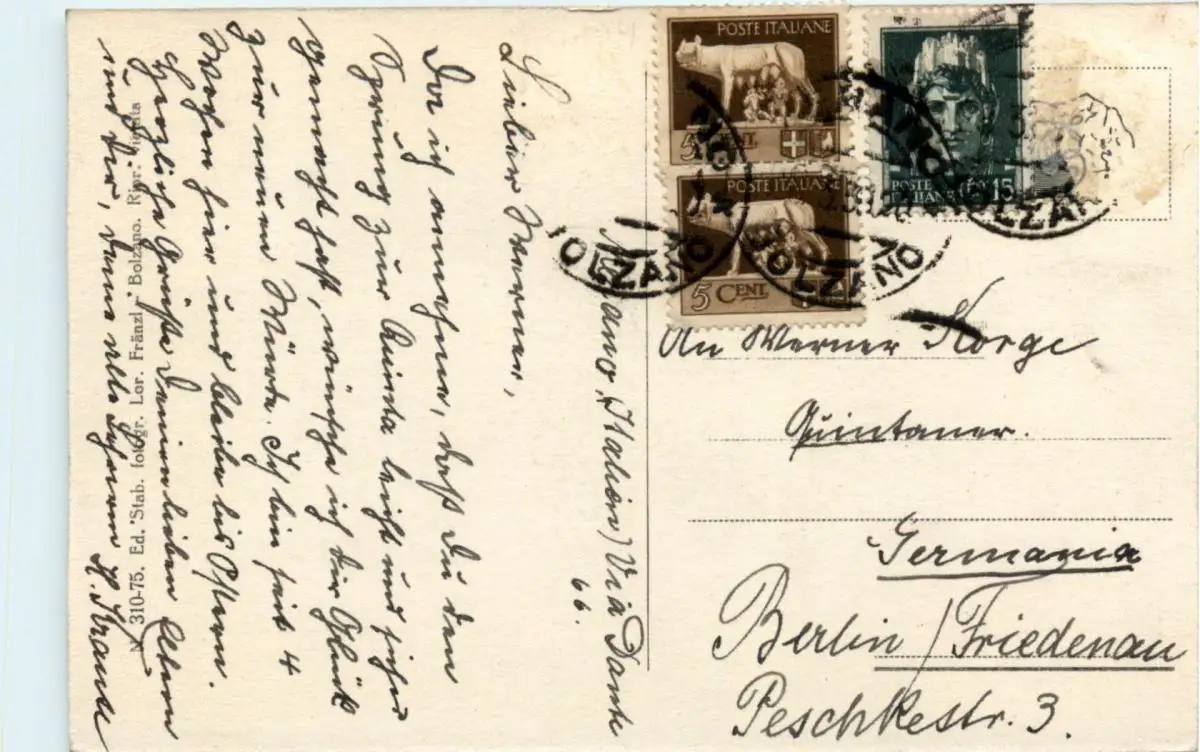 Bolzano, (Italien) Via Dante
66.
Lieber Werner,
Da ich annehme, daß Du den
Sprung zur Quinta leicht und sicher
gemacht hast, wünsche ich dir Glück
zur neuen Würde. Ich bin seit 4
Wochen hier und bleibe bis Ostern.
Herzliche Grüße Deinen lieben Eltern
und Dir, Dein alter Lehrer
N. 310-75. Ed. Stab. fotogr. Lor. Fränzl - Bolzano. Ripr. Vietata
POSTE ITALIANE
5 CENT.
POSTE ITALIANE
5 CENT.
POSTE
ITALIANE
15
BOLZANO
BOLZANO
BOLZANO
An Werner Korge
Quintaner.
Germania
Berlin/Friedenau
Peschkestr. 3.